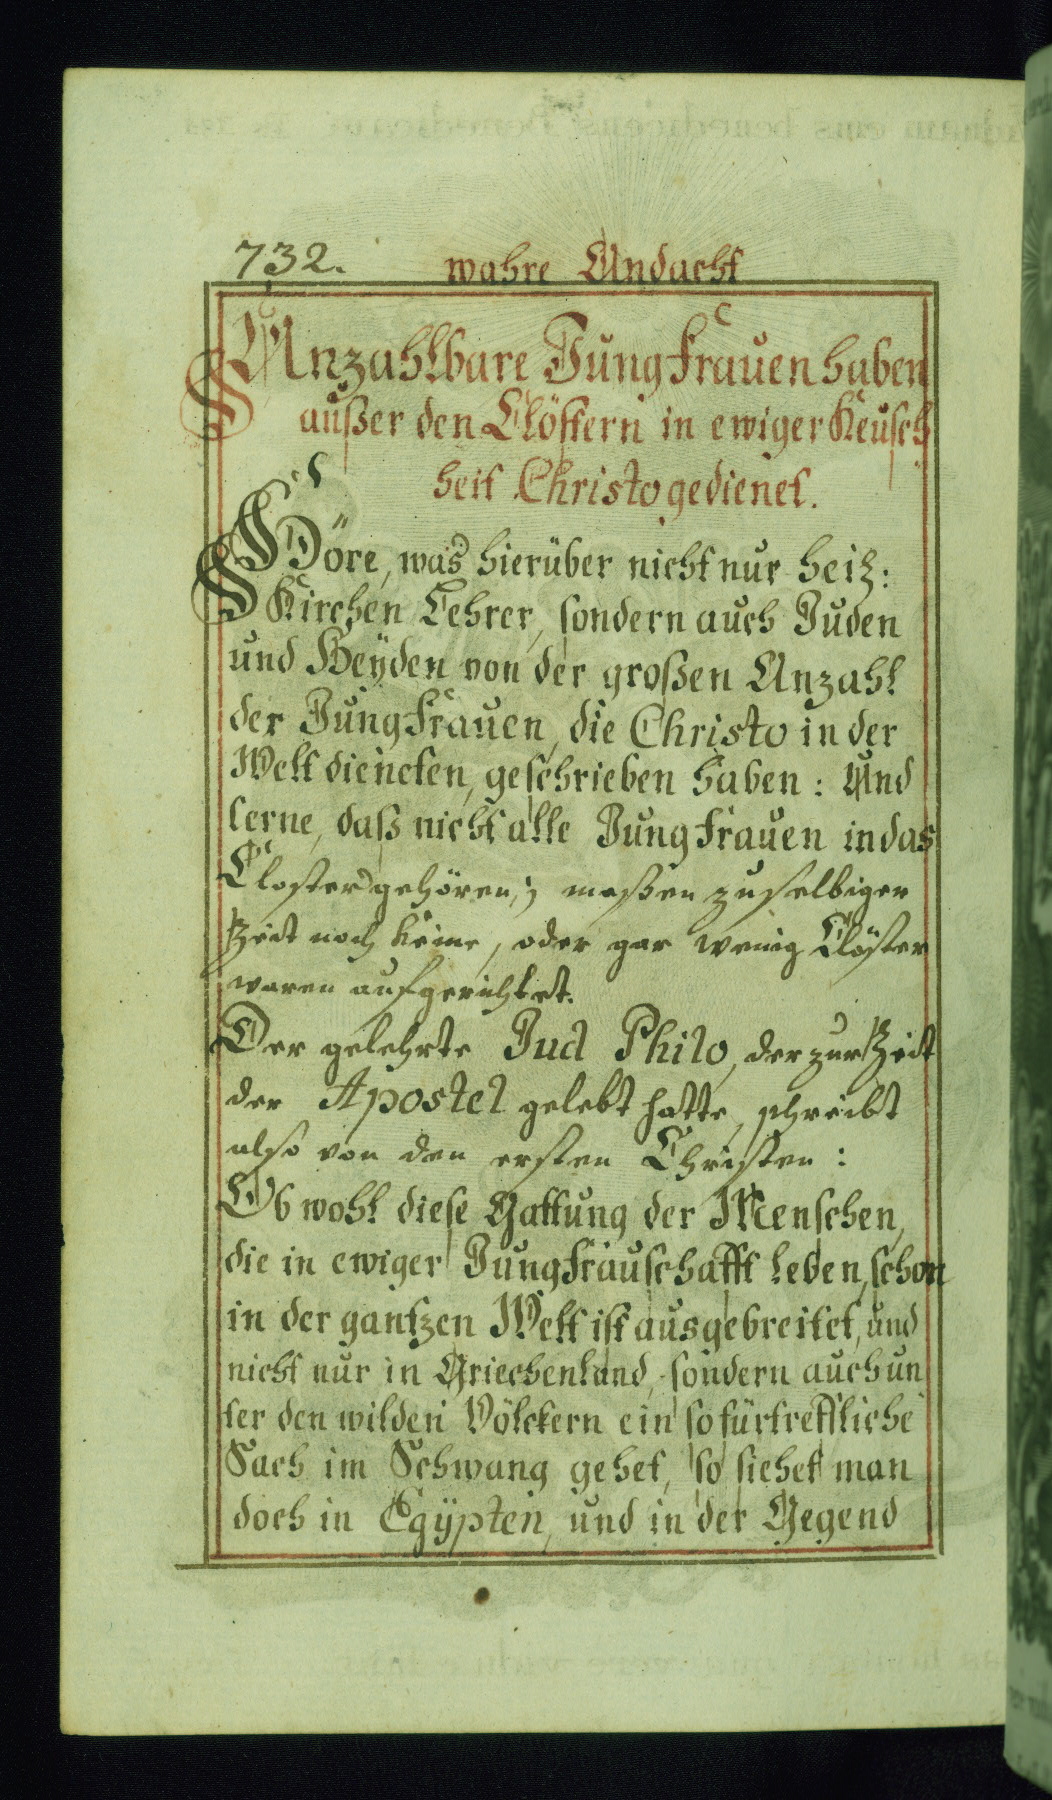 732. wahre Andacht
Unzahlbare Jungfrauen haben
außer den Clöstern in ewiger Keusch
heit Christo gedienet.
Höre, was hierüber nicht nur heil:
Kirchen Lehrer, sondern auch Juden
und Heÿden von der großen Anzahl
der Jungfrauen, die Christo in der
Welt dieneten, geschrieben haben: Und
lerne, daß nicht alle Jungfrauen in das
Closter gehören; maßen zu selbiger
Zeit noch keine, oder gar wenig Clöster
waren aufgerichtet.
Der gelehrte Jud Philo, der zur Zeit
der Apostel gelebt hatte, schreibt
also von den ersten Christen:
Ob wohl diese Gattung der Menschen,
die in ewiger Jungfrauschafft leben, schon
in der gantzen Welt ist ausgebreitet, und
nicht nur in Griechenland, sondern auch un
ter den wilden Völckern ein so fürtreffliche
Sach im Schwang gehet, so siehet man
doch in Egÿpten, und in der Gegend